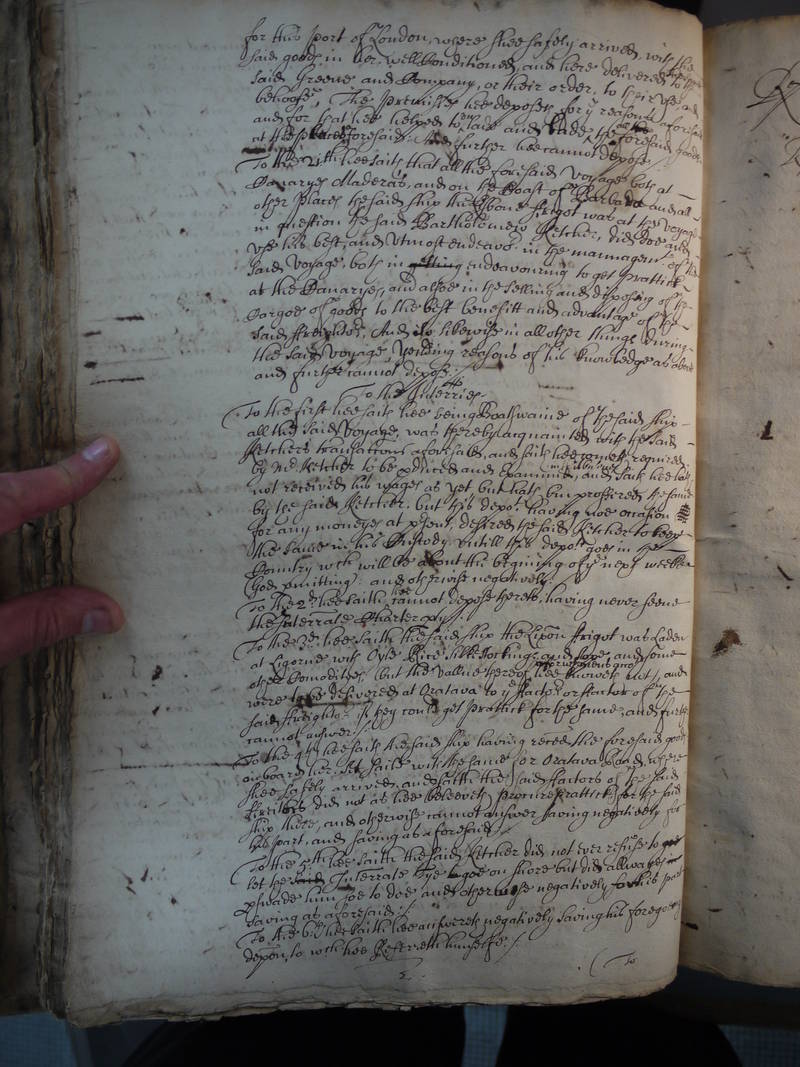 for this Port of London, where shee safely arrived, with the
said goods in her well Conditioned, and here delivered to the
said Greene and Company, or their order, to their use and
behoofe, The premisses hee deposeth for the reasons aforesaid
and for that hee helped to lade and unlade the aforesaid goods
at the places aforesaid. And further hee cannot depose
To the hee saith that all the foresaid Voyage both at
Canaryes Maderas, and on the Coast of Barbada and all
other places the said ship the Lisbone frigot was at the voyage
in question the said Bartholomew Ketcher, did doe and
use his best, and utmost endeavor in the mannagemt of the
said voyage, both in getting endeavouring to get prattick
at the Canaryes, and alsoe in the selling and disposing of the
Cargoe of goods to the best benefitt and advantage of the
said ffreighters, And soe likewise in all other things during
the said voyage, yeilding reasons of his knowledge as above
and further cannot depose./
To the Interries
To the first hee saith hee being Boatswaine of the said ship
all the said Voyage, was thereby acquainted with the said
Ketchers transactions aforesaid, and saith hee cometh required
by Mr Ketcher to be produced and examined, and saith hee hath
not received his wages as yet but hath bin proffered the same
by the said Ketcher, but this depot having noe occasion
for any moneyes at psent, desired the said Ketcher to keep
the same in his Custody untill this depot goes in the
Country wch will be about the begining of ye next weeke
God pmitting: and otherwise negatively
To the 2d hee saith hee cannot depose thereto, having never seene
the Interrate Charter party./
To the 3d hee saith the said ship the Lixon frigot was Laden
at Ligorne with Oyle Rice Silke Stockings, and some
other Comodityes, but the vallue thereof hee knoweth not, and
were to be delivered at Oratava to ye ffactor or ffactors of the
said ffreightors if they could get prattick for the same, and further
cannot answer./
To the 4th hee saith the said ship having reced the foresaid goods
onboard her, set saile with the same for Oratava Road, where
shee safely arrived, and saith the said ffactors of the said
ffreitors did not as hee beleeveth procure prattick for the said
ship there, and otherwise cannot answer saving negatively for
his part, and saving as aforesaid./
To the 5th hee saith the said Ketcher did not ever refuse to
let the said Interrate Pye goe on shore but did allwayes
pswade him soe to doe and otherwise negatively for his part
saving as aforesaid./
To the 6th hee saith hee answereth negatively saving his foregoeing
depon, to wch hee Referreth himselfe./
To